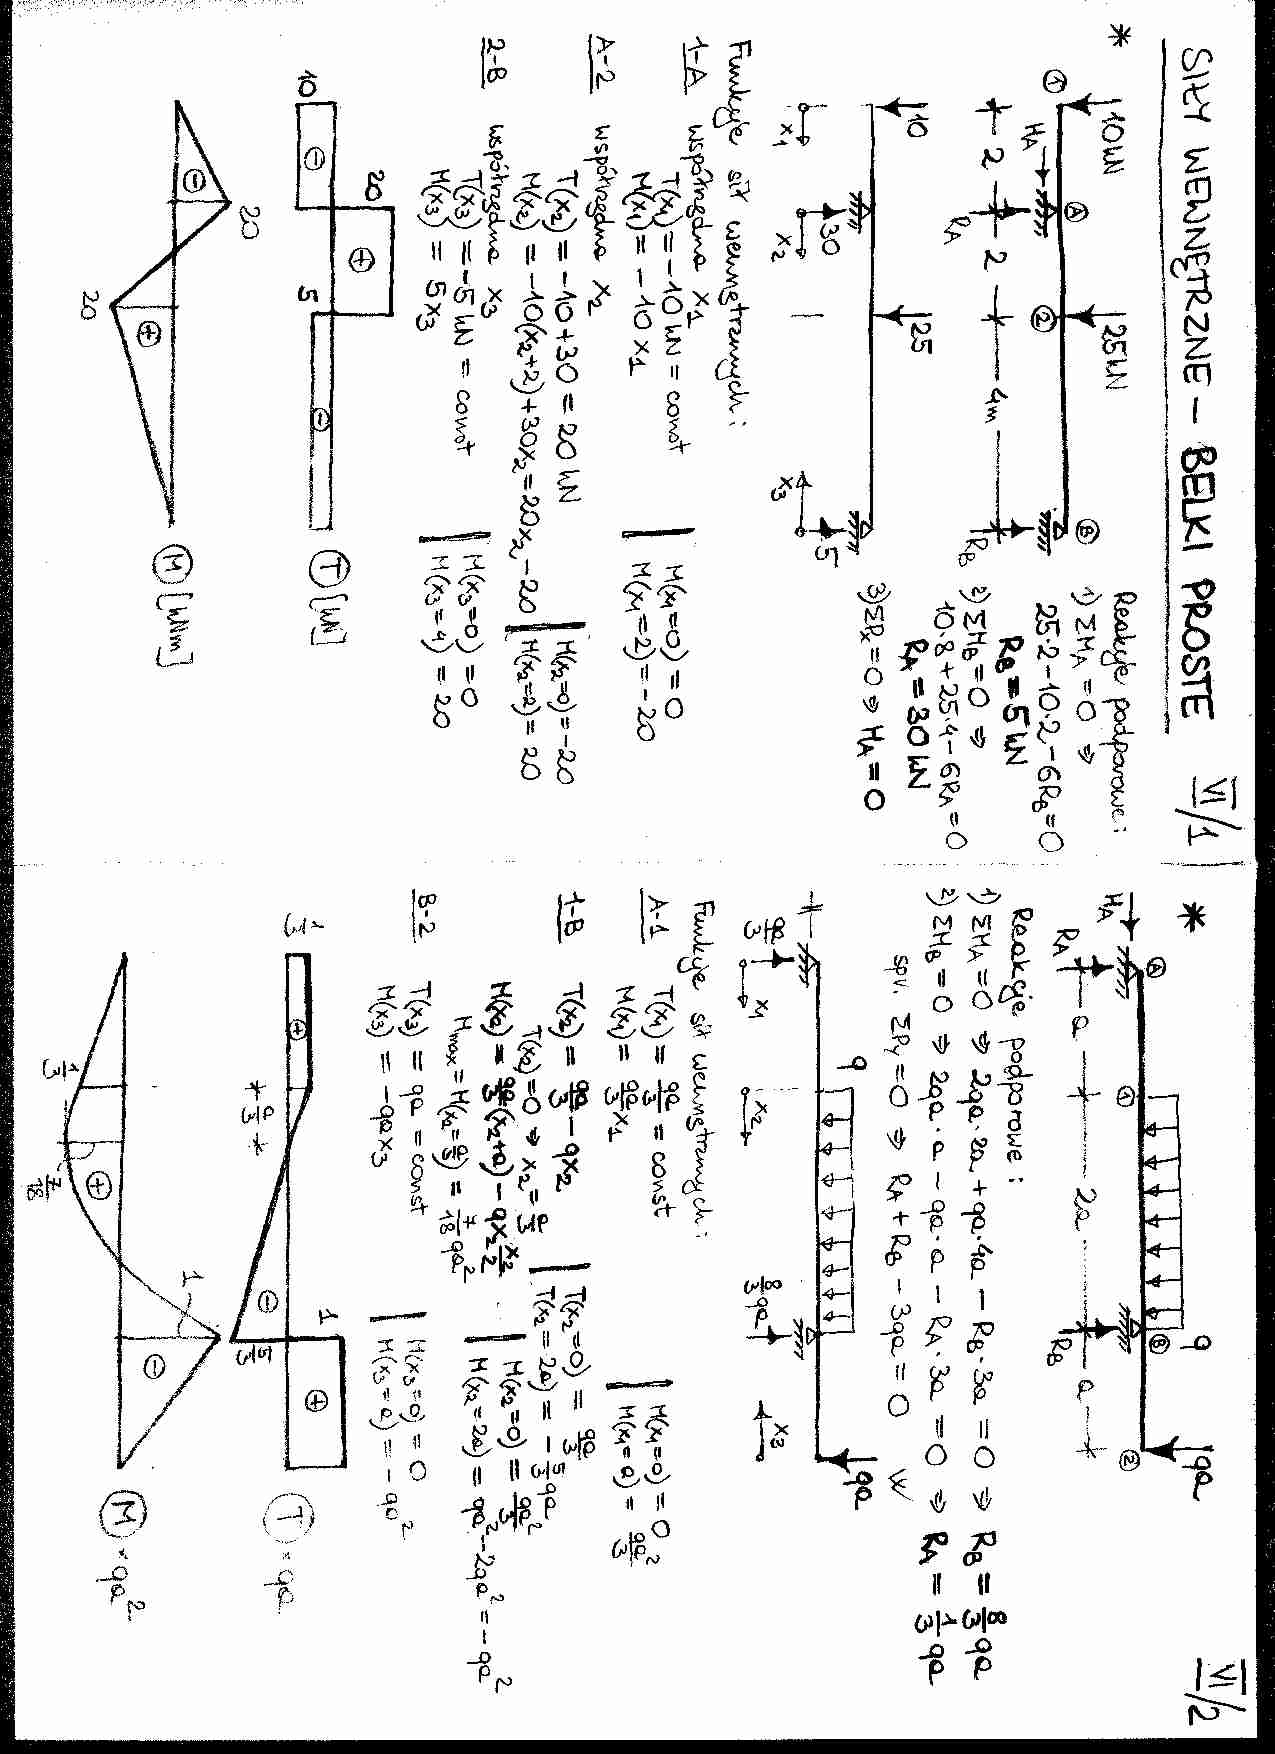 SIŁY WEWNĘTRZNE – BELKI PROSTE
VI/1
*
10kN
25kN
1
A
2
B
H_A
R_A
R_B
2
2
4m
Reakcje podporowe:
1) ΣM_A = 0 ⇒
25·2 − 10·2 − 6R_B = 0
R_B = 5 kN
2) ΣM_B = 0 ⇒
10·8 + 25·4 − 6R_A = 0
R_A = 30 kN
3) ΣP_x = 0 ⇒ H_A = 0
10
25
30
5
x₁
x₂
x₃
Funkcje sił wewnętrznych:
1-A współrzędna x₁
T(x₁) = −10 kN = const
M(x₁) = −10 x₁
M(x₁=0) = 0
M(x₁=2) = −20
A-2 współrzędna x₂
T(x₂) = −10 + 30 = 20 kN
M(x₂) = −10(x₂+2) + 30x₂ = 20x₂ − 20
M(x₂=0) = −20
M(x₂=2) = 20
2-B współrzędna x₃
T(x₃) = −5 kN = const
M(x₃) = 5x₃
M(x₃=0) = 0
M(x₃=4) = 20
10
−
20
+
5
−
T [kN]
−
20
20
+
M [kNm]
VI/2
*
q
qa
H_A
A
1
B
2
R_A
R_B
a
2a
a
Reakcje podporowe:
1) ΣM_A = 0 ⇒ 2qa·2a + qa·4a − R_B·3a = 0 ⇒ R_B = 8/3 qa
2) ΣM_B = 0 ⇒ 2qa·a − qa·a − R_A·3a = 0 ⇒ R_A = 1/3 qa
spr. ΣP_y = 0 ⇒ R_A + R_B − 3qa = 0
q
qa
qa/3
8/3 qa
x₁
x₂
x₃
Funkcje sił wewnętrznych:
A-1
T(x₁) = qa/3 = const
M(x₁) = qa/3 x₁
M(x₁=0) = 0
M(x₁=a) = qa²/3
1-B
T(x₂) = qa/3 − qx₂
T(x₂=0) = qa/3
T(x₂=2a) = −5/3 qa
T(x₂) = 0 ⇒ x₂ = a/3
M(x₂) = qa/3 (x₂+a) − qx₂ x₂/2
M(x₂=0) = qa²/3
M(x₂=2a) = qa² − 2qa² = −qa²
M_max = M(x₂=a/3) = 7/18 qa²
B-2
T(x₃) = qa = const
M(x₃) = −qax₃
M(x₃=0) = 0
M(x₃=a) = −qa²
1/3
+
a/3
−
5/3
1
+
T × qa
1/3
7/18
+
1
−
M × qa²